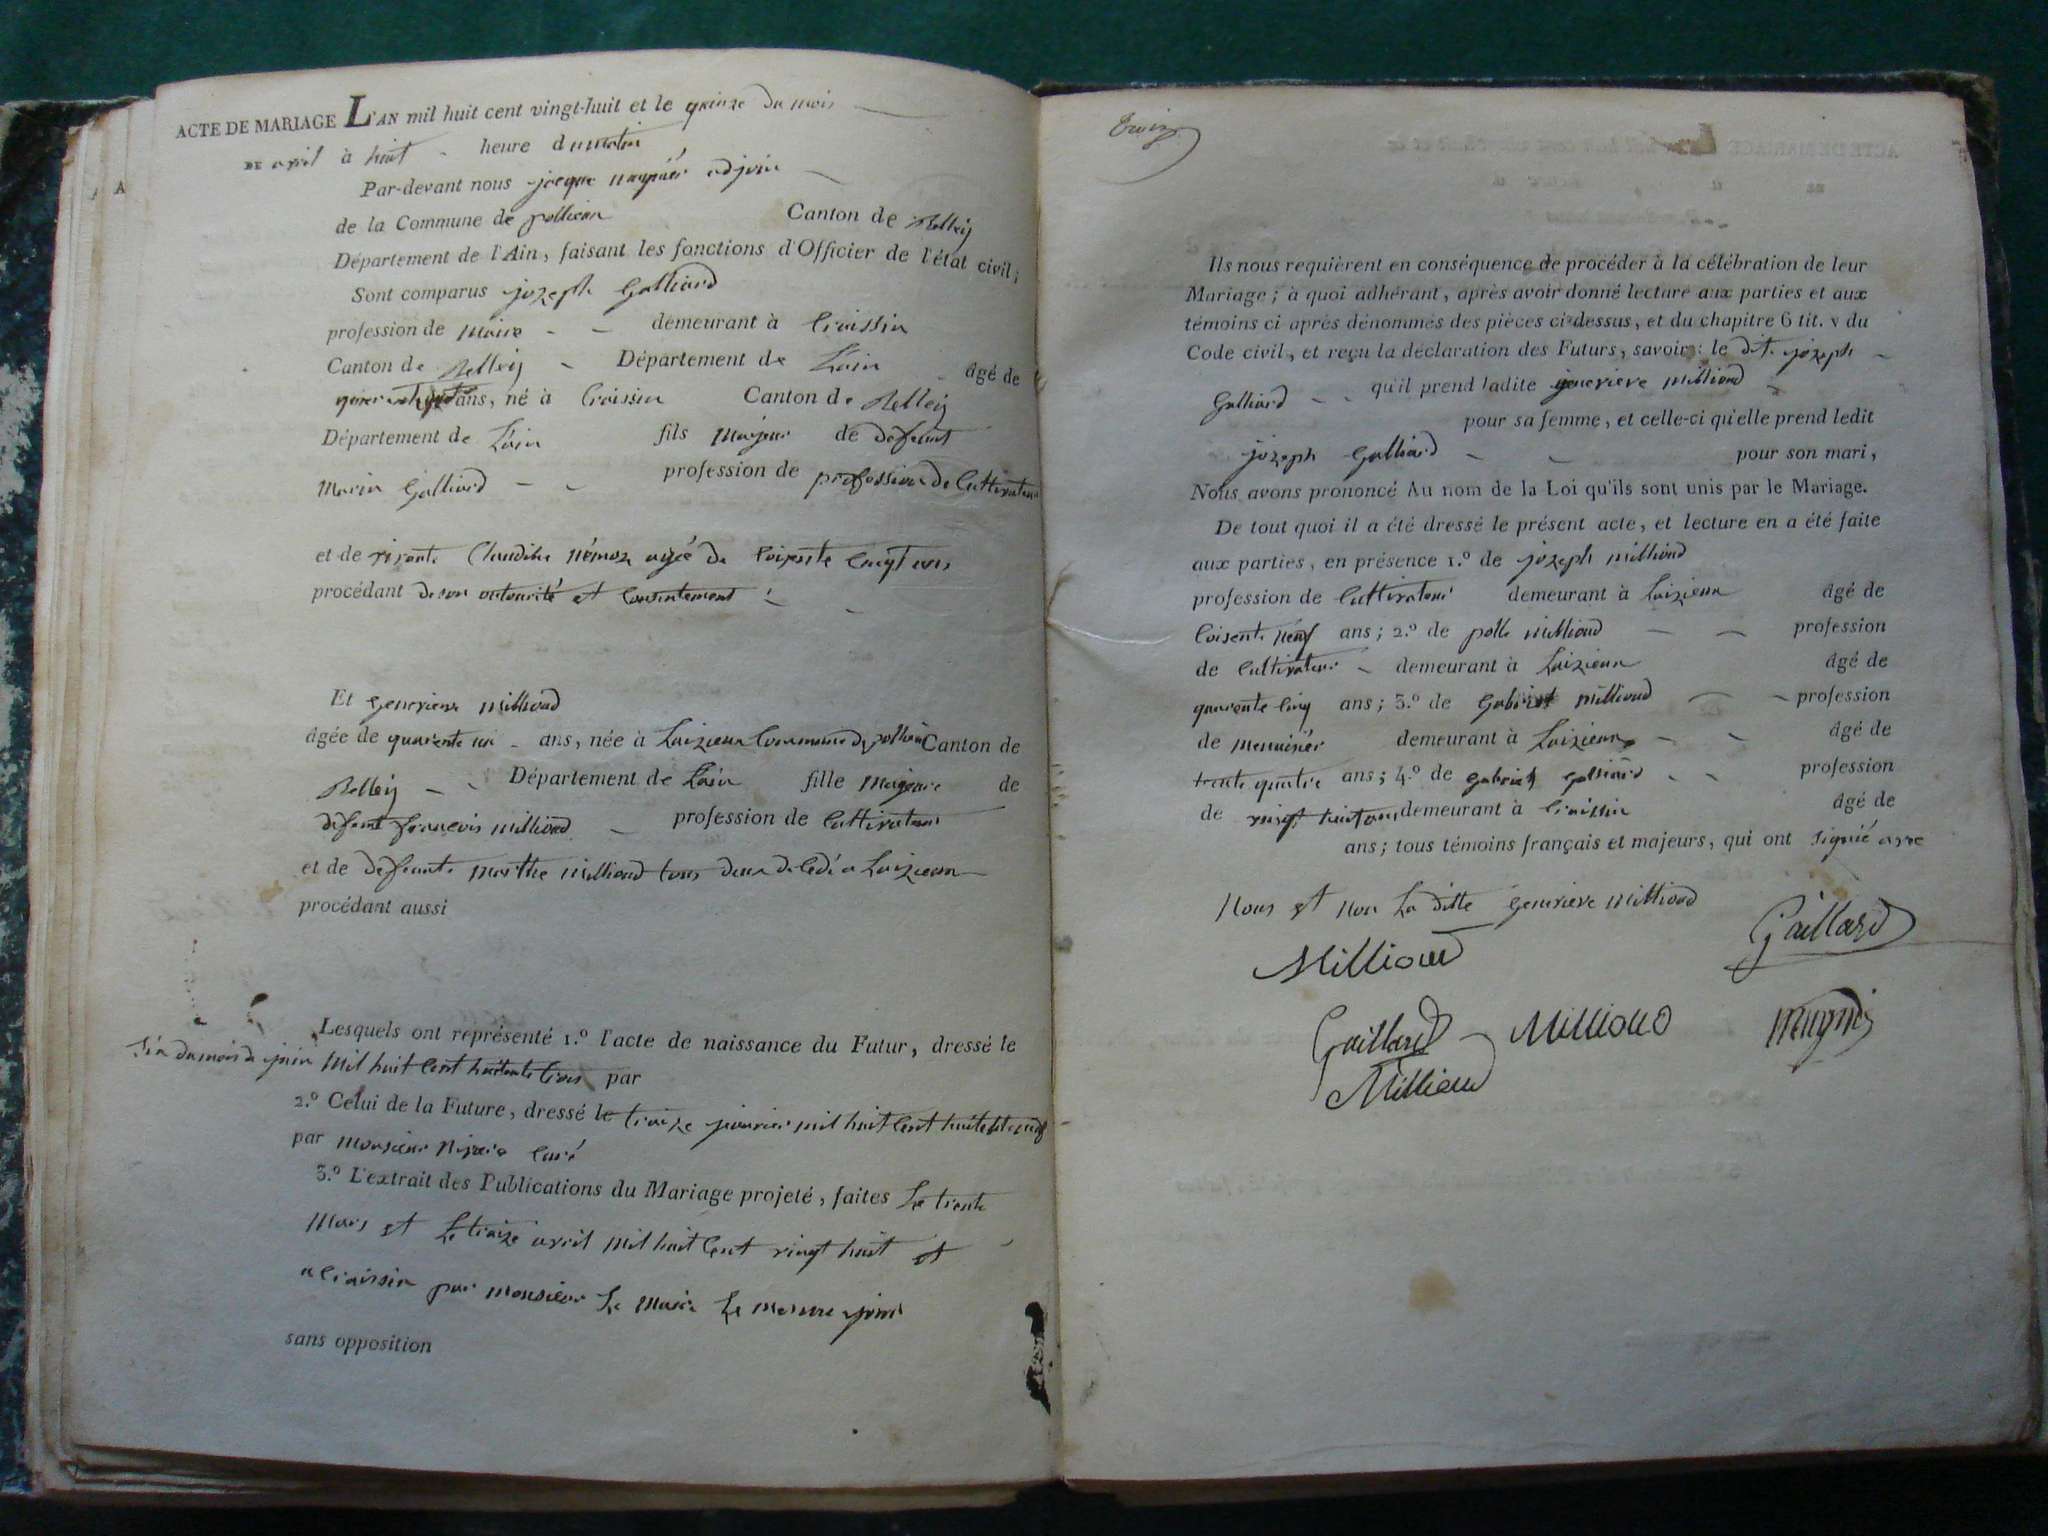 ACTE DE MARIAGE L'AN mil huit cent vingt-huit et le quinze du mois
DE avril à huit heure du matin
Par-devant nous jacque adjoin
de la Commune de pollieu Canton de Belley
Département de l'Ain, faisant les fonctions d'Officier de l'état civil;
Sont comparus jozeph Galliard
profession de Maire demeurant à Craissin
Canton de Belley Département de Lain âgé de
ans, né à Craissin Canton de Belley
Département de Lain fils Majeur de defunt
Marin Galliard profession de profession de Cultivateur
et de vivante Claudine agée de
procédant de son autorité et Consentement
Et Genevieve Milliand
âgée de quarente ans, née à Laizieux Commune de pollieu Canton de
Belley Département de Lain fille Majeure de
defunt francois Milliand profession de Cultivateur
et de defeunte Marthe Milliand tous deux a Laizieux
procédant aussi
Lesquels ont représenté 1.º l'acte de naissance du Futur, dressé le
Six du mois de juin Mil huit Cent huitente trois par
2.º Celui de la Future, dressé le traize janvier mil huit Cent
par Monsieur Curé
3.º L'extrait des Publications du Mariage projeté, faites Le trente
Mars et Le traize avril Mil huit Cent vingt huit et
a Craissin par Monsieur Le Maire Le Mesme jour
sans opposition
Ils nous requièrent en conséquence de procéder à la célébration de leur
Mariage; à quoi adhérant, après avoir donné lecture aux parties et aux
témoins ci après dénommés des pièces ci-dessus, et du chapitre 6 tit. v du
Code civil, et reçu la déclaration des Futurs, savoir: le dit jozeph
Galliard qu'il prend ladite genevieve Milliand
pour sa femme, et celle-ci qu'elle prend ledit
jozeph Galliard pour son mari,
Nous avons prononcé Au nom de la Loi qu'ils sont unis par le Mariage.
De tout quoi il a été dressé le présent acte, et lecture en a été faite
aux parties, en présence 1.º de jozeph Milliand
profession de Cultivateur demeurant à Laizieux âgé de
Coisente Neuf ans; 2.º de Milliand profession
de Cultivateur demeurant à Laizieux âgé de
quarente Cinq ans; 3.º de Gabriel Milliand profession
de Menuisier demeurant à Laizieux âgé de
trente quatre ans; 4.º de Gabriel Galliard profession
de vingt huit ans demeurant à Craissin âgé de
ans; tous témoins français et majeurs, qui ont Signié avec
Nous et Non La ditte Genevieve Milliand
Milliand Gaillard
Gaillard Milliand
Milliand